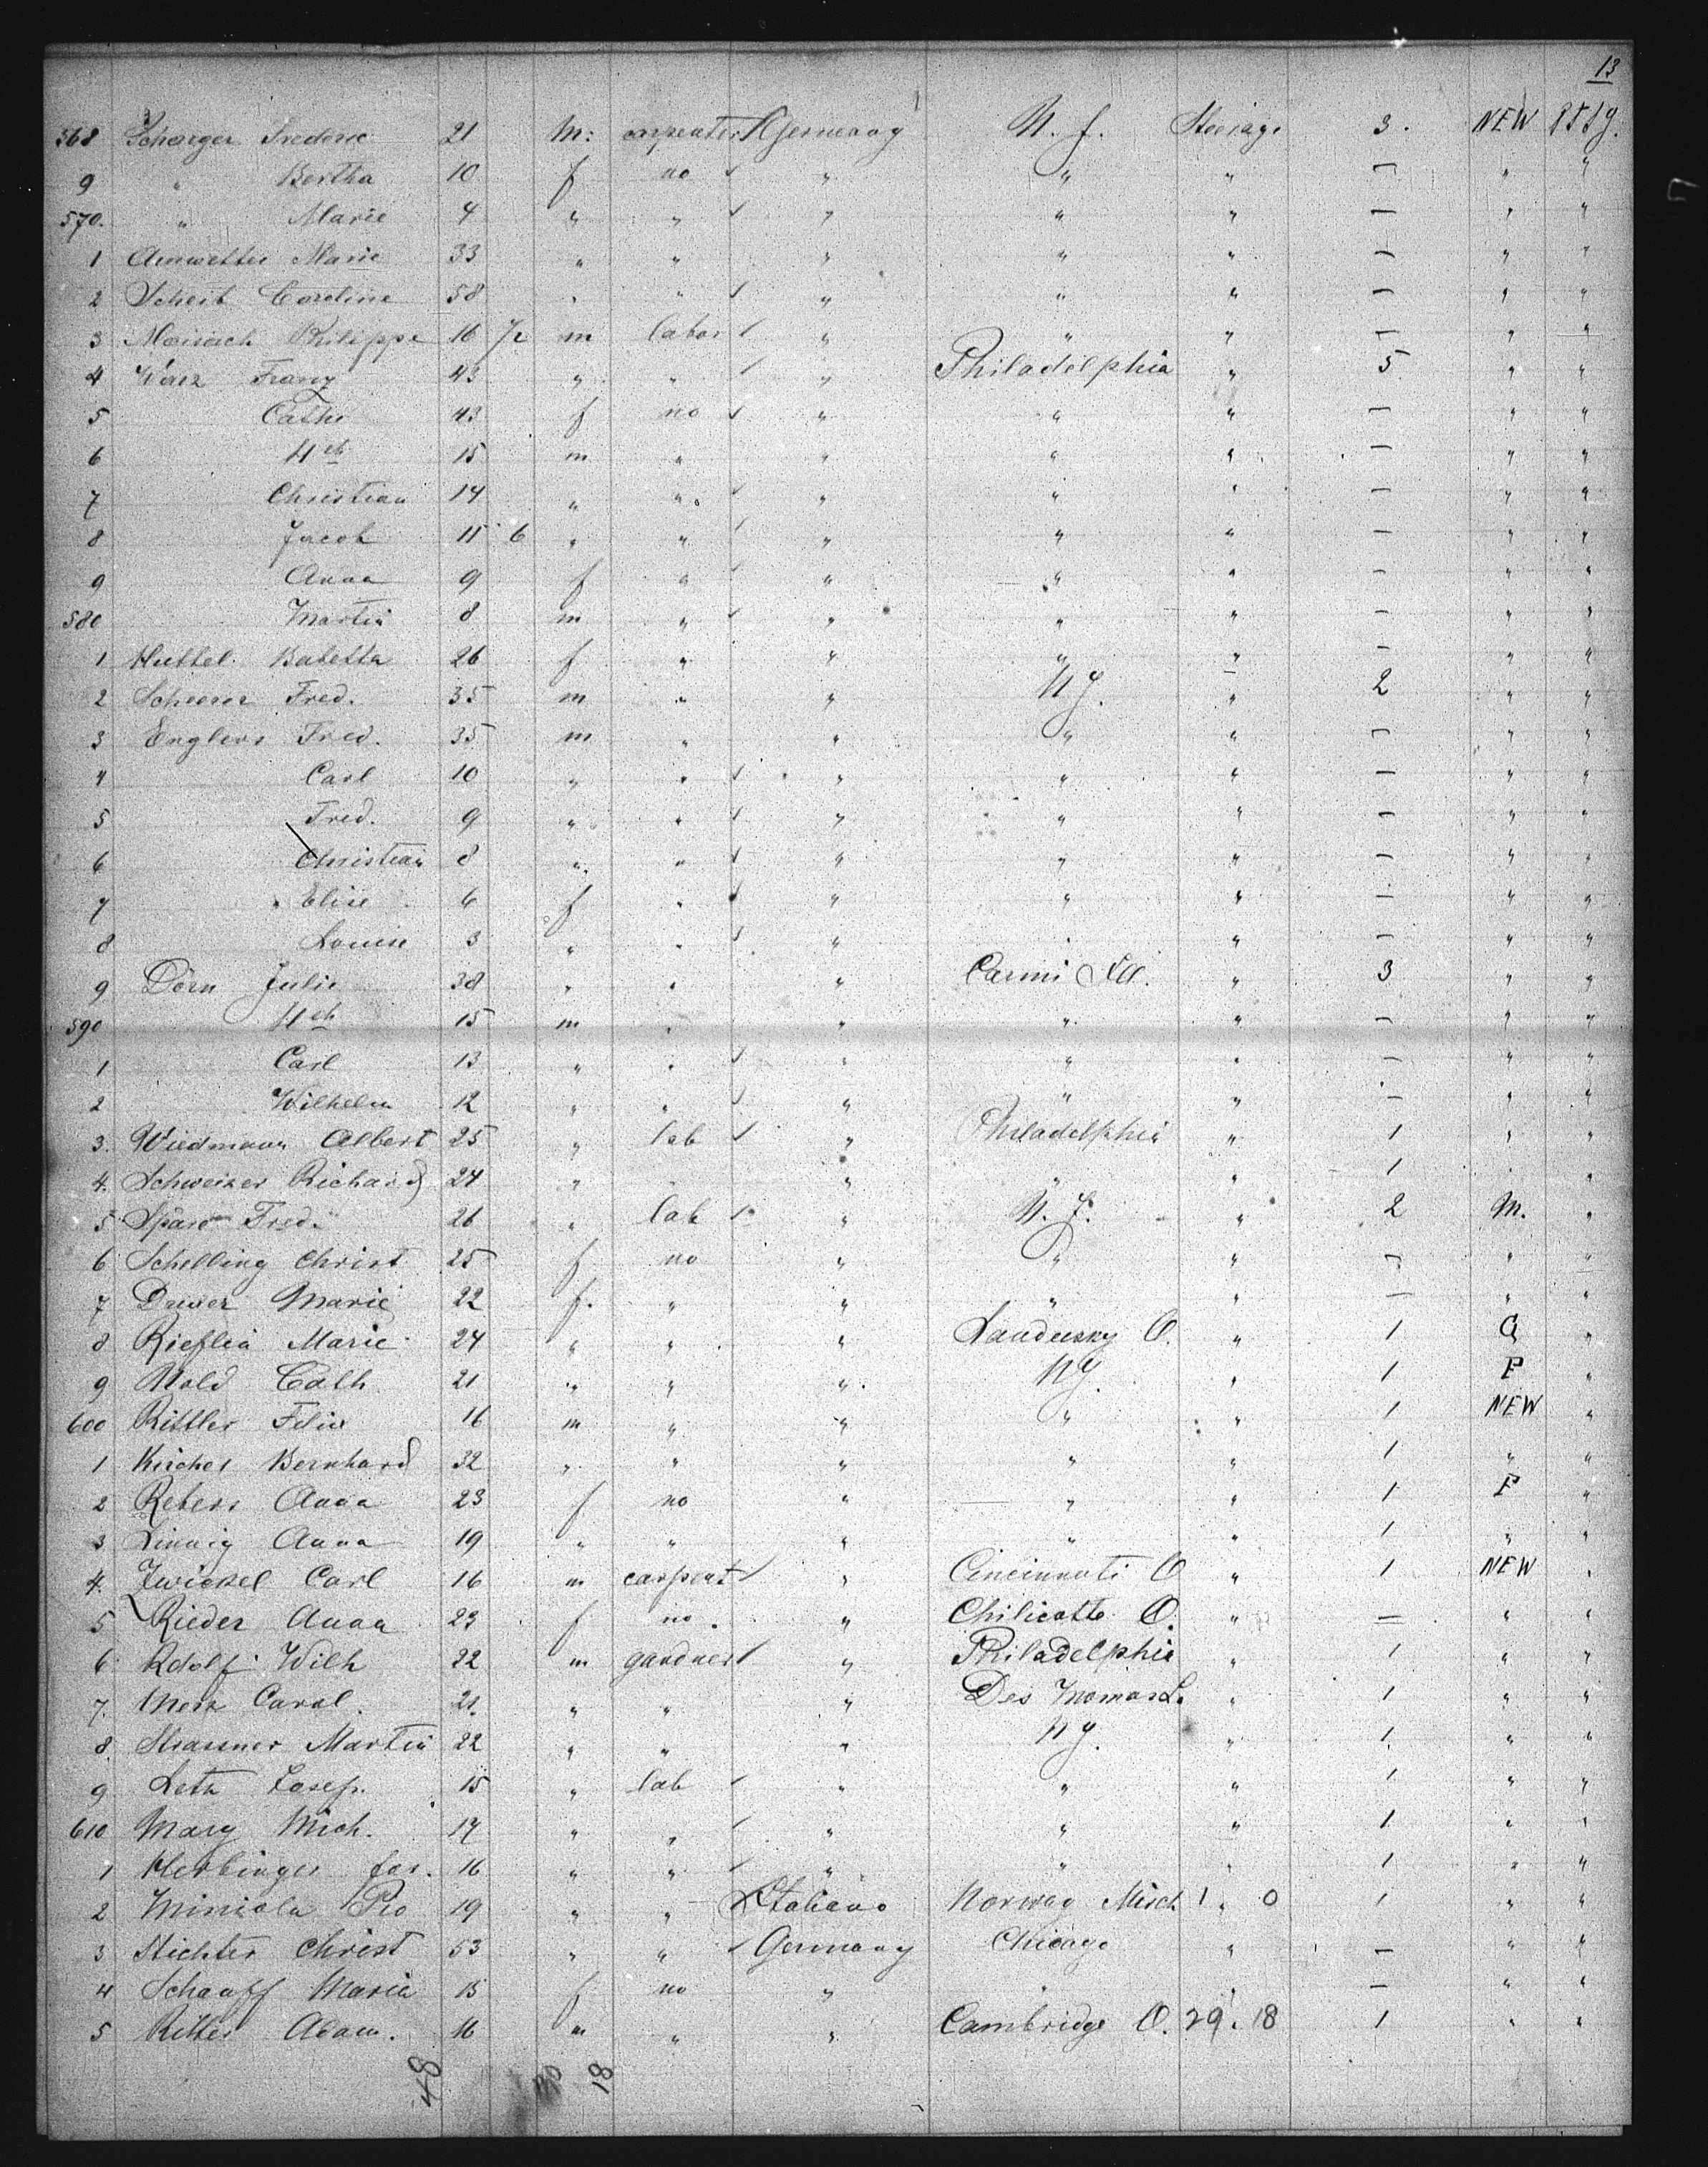 13
568 Scharger Frederic 21 m: carpenter Germany N. J. Steerage 3. NEW
9 " Bertha 10 f no " " " — " "
570. " Marie 4 " " " " " — " "
1 Marie 33 " " " " " — " "
2 Scheib Caroline 58 " " " " " — " "
3 Philippe 16 m labor " " " — " "
4 Franz 43 " " " Philadelphia " 5 " "
5 Cath 43 f no " " " — " "
6 Hch 15 m " " " " — " "
7 Christian 14 " " " " " — " "
8 Jacob 11 6 " " " " " — " "
9 Anna 9 f " " " " — " "
580 Martin 8 m " " " " — " "
1 Huttel Babetta 26 f " " " " — " "
2 Scheerer Fred. 35 m " " NY. " 2 " "
3 Englers Fred. 35 m " " " " — " "
4 Carl 10 " " " " " — " "
5 Fred. 9 " " " " " — " "
6 Christian 8 " " " " " — " "
7 Elise 6 f " " " " — " "
8 Louise 3 " " " " " — " "
9 Dörn Julie 38 " " " Carmi Ill. " 3 " "
590 Hch 15 m " " " " — " "
1 Carl 13 " " " " " — " "
2 Wilhelm 12 " " " " " — " "
3. Wiedmann Albert 25 " lab " Philadelphia " 1 " "
4. Schweizer Richard 24 " " " " " 1 " "
5 Fred. 26 " lab " N. J. " 2 M. "
6 Schelling Christ 25 f no " " " — " "
7 Marie 22 f. " " " " — " "
8 Rieflin Marie 24 " " " Sandusky O. " 1 G "
9 Nold Cath 21 " " " NY. " 1 F "
600 Rittler Felix 16 m " " " " 1 NEW "
1 Kircher Bernhard 32 " " " " " 1 " "
2 Rebers Anna 23 f no " " " 1 F "
3 Anna 19 " " " " " 1 " "
4. Zwickel Carl 16 m carpent " Cincinnati O " 1 NEW "
5 Rieder Anna 23 f no " Chilicotte O. " — " "
6 Rdolf Wilh 22 m gardner " Philadelphia " 1 " "
7. Merz Carol. 21. " " " Des " 1 " "
8 Strassner Martin 22 " " " NY. " 1. " "
9 Leth Josef. 15 " lab " " " 1 " "
610 Mary Mich. 17 " " " " " 1 " "
1 Herbinger Jos. 16 " " " " " 1 " "
2 Miniola Pio 19 " " Italiano Norway Mich 1 " 0 1 " "
3 Stichter Christ 53 " " Germany Chicago " — " "
4 Schaaff Maria 15 f no " " " — " "
5 Ritter Adam. 16 m " " Cambridge O. 29. 18 1 " "
48 30 18